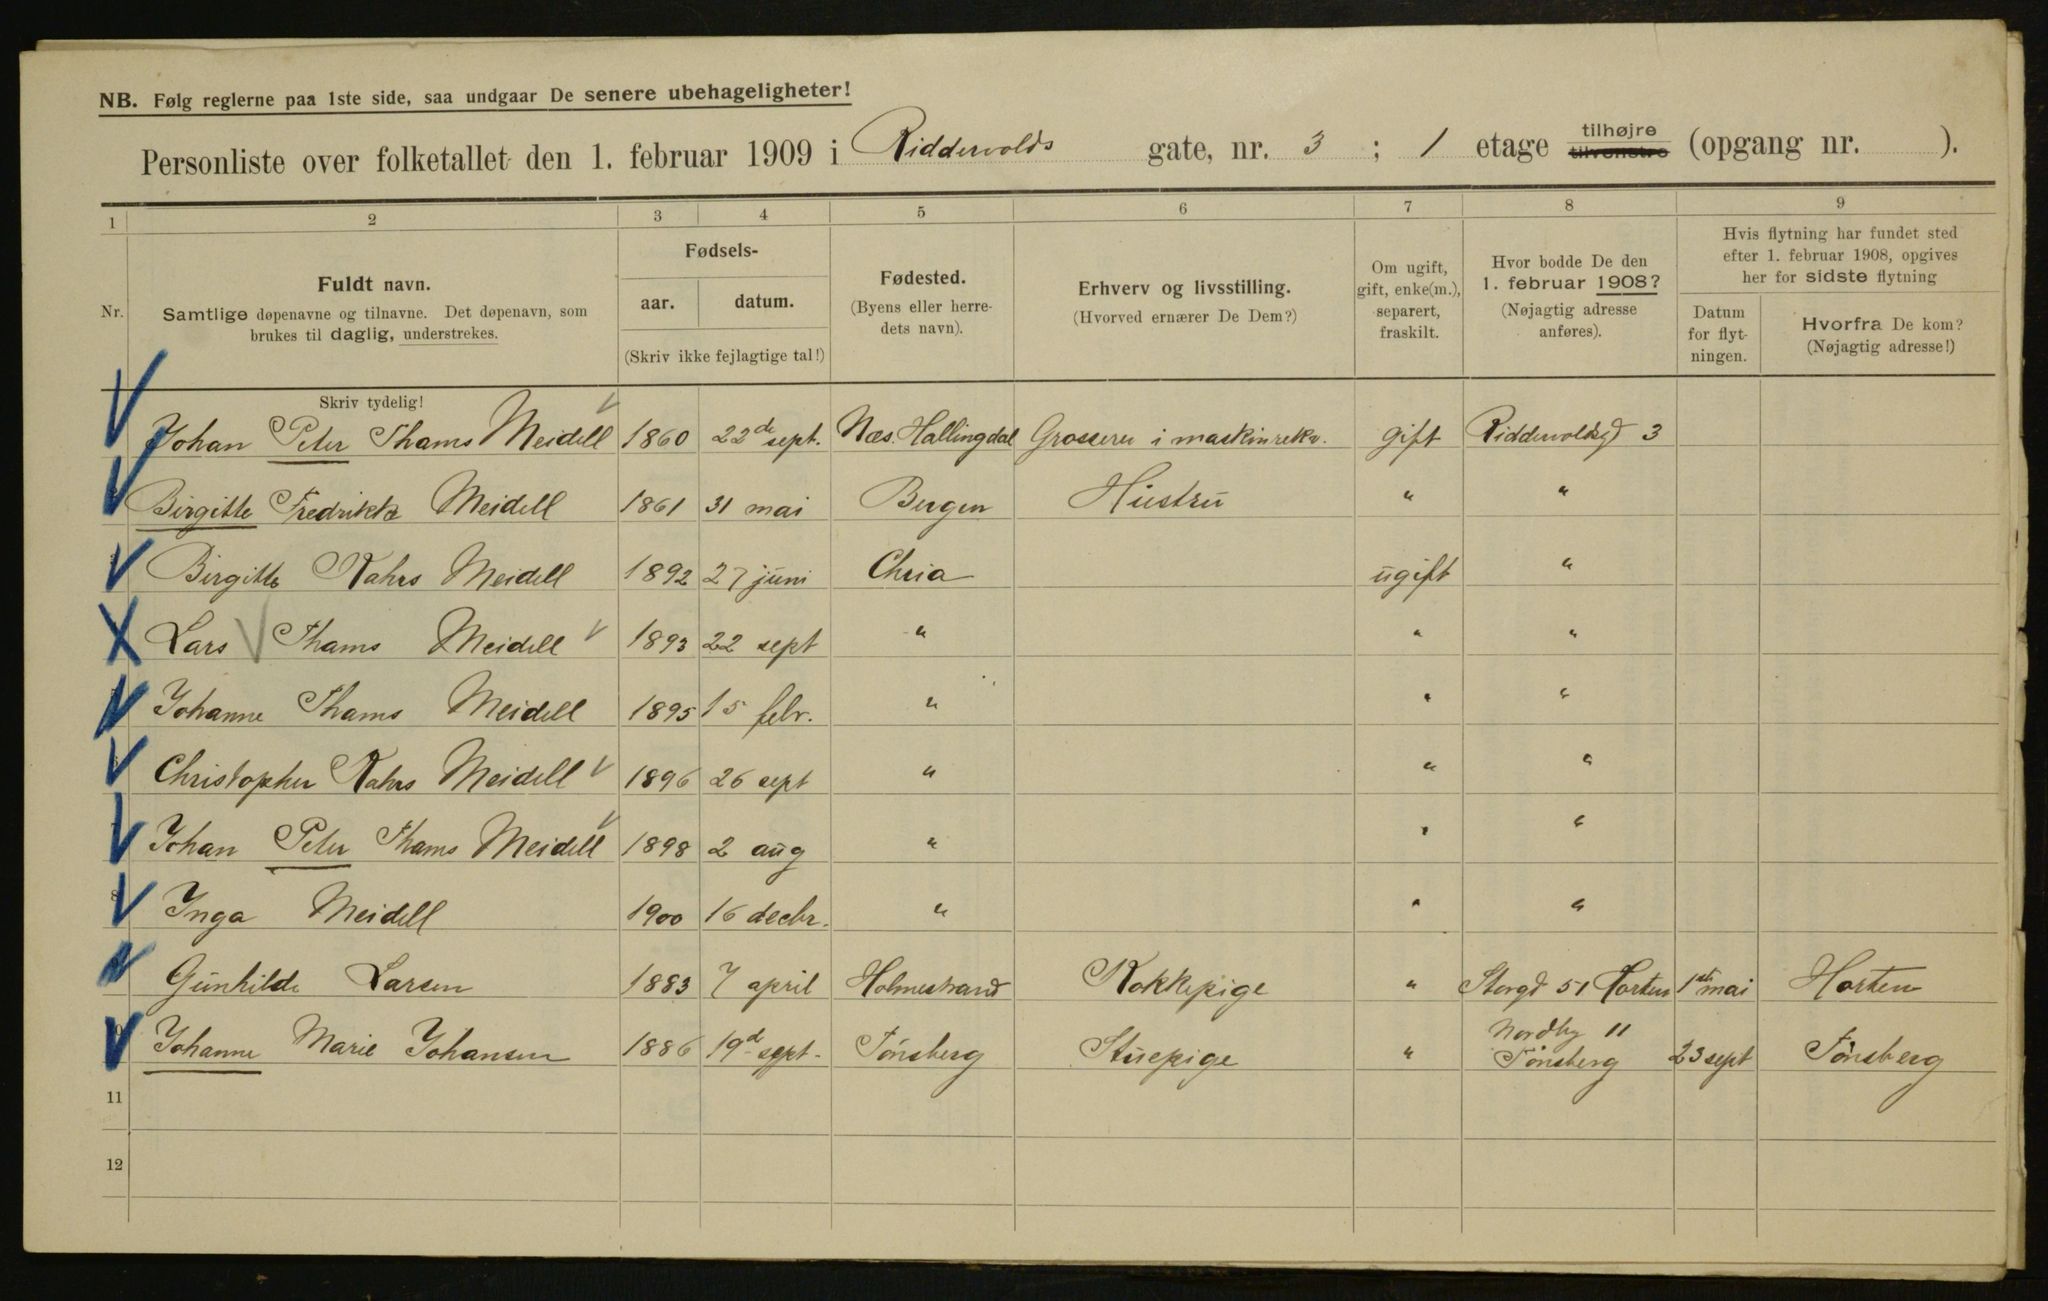 NB. Følg reglerne paa 1ste side, saa undgaar De senere ubehageligheter!
Personliste over folketallet den 1. februar 1909 i Riddervolds gate, nr. 3 ; 1 etage tilhøjre tilvenstre (opgang nr. ).
1 2 3 4 5 6 7 8 9
Nr.
Fuldt navn.
Samtlige døpenavne og tilnavne. Det døpenavn, som
brukes til daglig, understrekes.
Skriv tydelig!
Fødsels-
aar. datum.
(Skriv ikke fejlagtige tal!)
Fødested.
(Byens eller herre-
dets navn).
Erhverv og livsstilling.
(Hvorved ernærer De Dem?)
Om ugift,
gift, enke(m.),
separert,
fraskilt.
Hvor bodde De den
1. februar 1908?
(Nøjagtig adresse
anføres).
Hvis flytning har fundet sted
efter 1. februar 1908, opgives
her for sidste flytning
Datum
for flyt-
ningen.
Hvorfra De kom?
(Nøjagtig adresse!)
Johan Peter Thams Meidell 1860 22de sept. Næs. Hallingdal Grosserer i maskinrekv. gift Riddervoldsgd 3
Birgitte Fredrikke Meidell 1861 31 mai Bergen Hustru " "
Birgitte Kahrs Meidell 1892 27 juni Chria ugift "
Lars Thams Meidell 1893 22 sept " " "
Johanne Thams Meidell 1895 15 febr. " " "
Christopher Kahrs Meidell 1896 26 sept " " "
Johan Peter Thams Meidell 1898 2 aug " " "
8 Inga Meidell 1900 16 decbr. " " "
Gunhilde Larsen 1883 7 april Holmestrand Kokkepige " Storgd 51 Horten 1ste mai Horten
Johanne Marie Johansen 1886 19d sept. Tønsberg Stuepige " Nordby 11 Tønsberg 23 sept Tønsberg
11
12